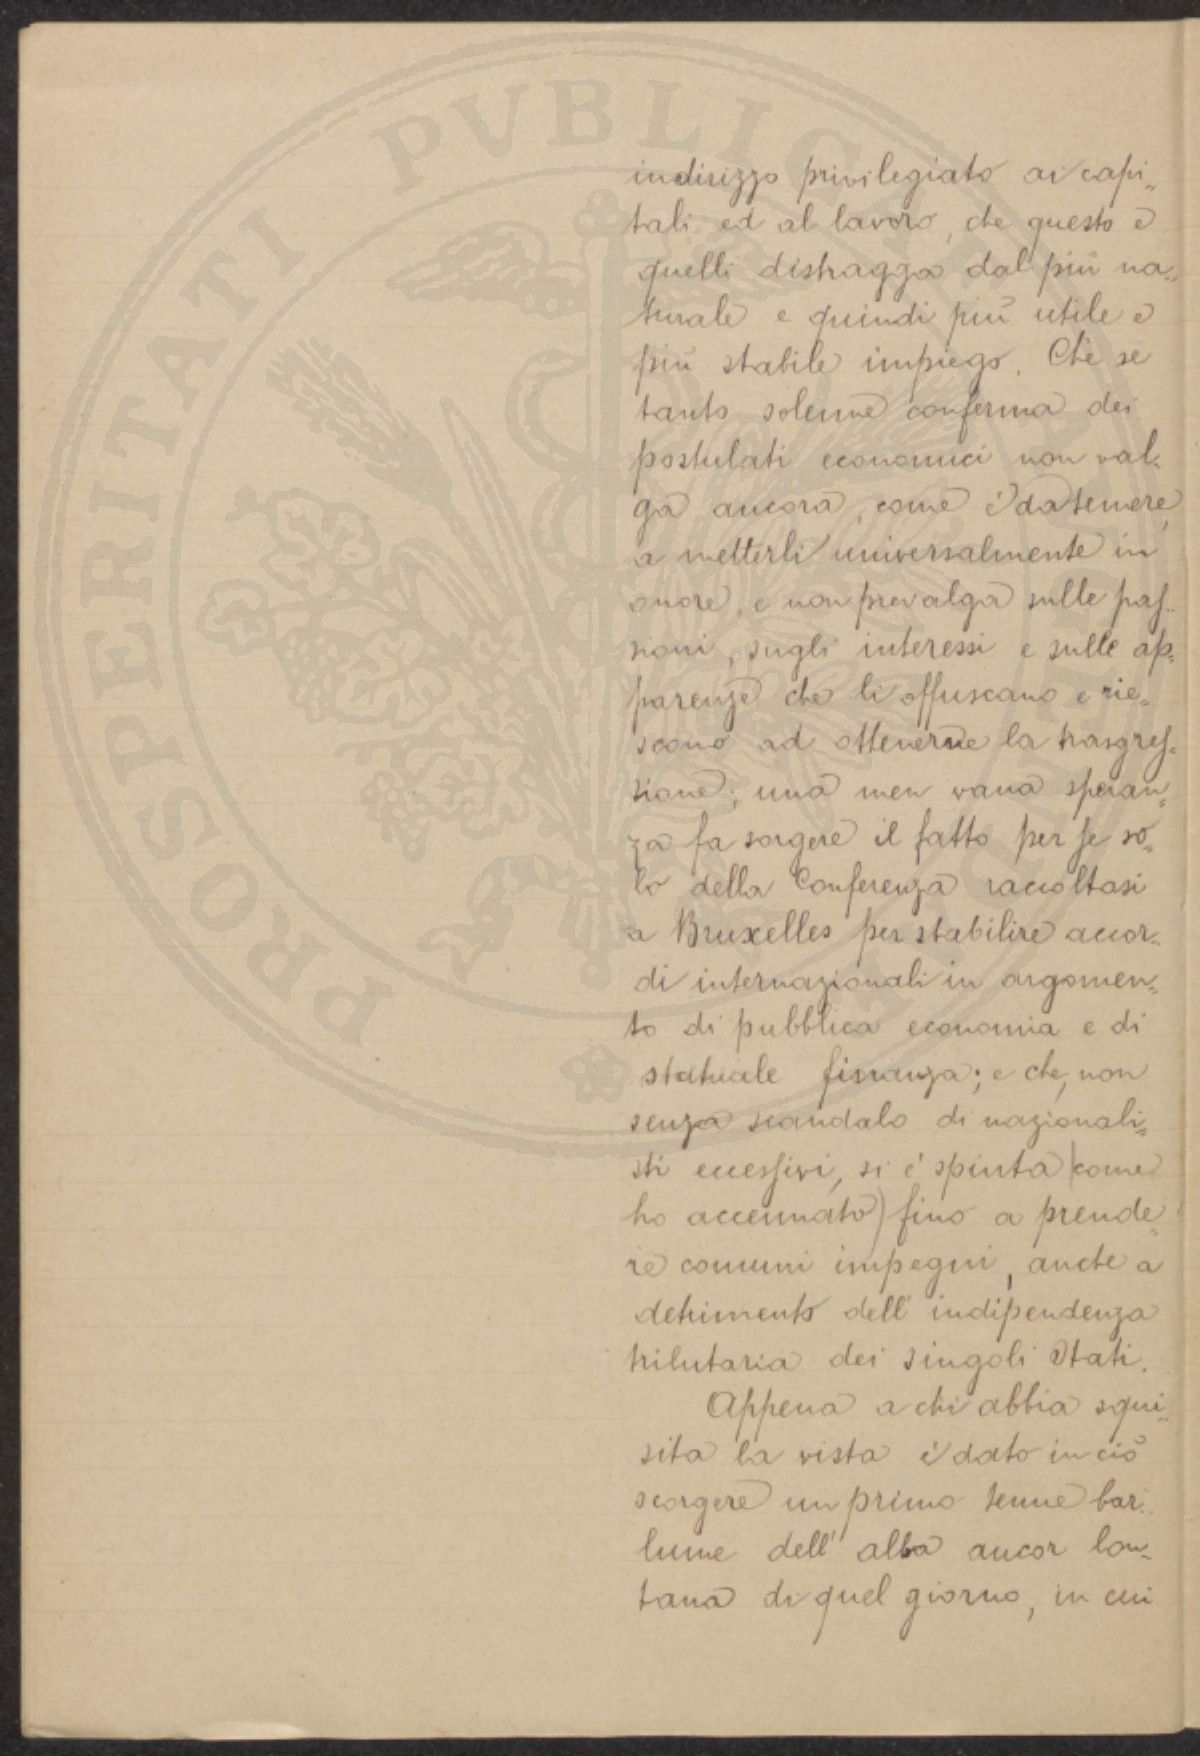 PROSPERITATI PVBLICAE
indirizzo privilegiato ai capi„
tali ed al lavoro, che questo e
quelli distragga dal più na„
turale e quindi più utile e
più stabile impiego. Chè se
tanto solenne conferma dei
postulati economici non val„
ga ancora, come è da temere,
a metterli universalmente in
onore, e non prevalga sulle pas„
sioni, sugli interessi e sulle ap„
parenze che li offuscano e rie„
scono ad ottenerne la trasgres„
sione; una men vana speran„
za fa sorgere il fatto per se so„
lo della Conferenza raccoltasi
a Bruxelles per stabilire accor„
di internazionali in argomen„
to di pubblica economia e di
statuale finanza; e che, non
senza scandalo di nazionali„
sti eccessivi, si è spinta (come
ho accennato) fino a prende„
re comuni impegni, anche a
detrimento dell' indipendenza
tributaria dei singoli Stati.
Appena a chi abbia squi„
sita la vista è dato in ciò
scorgere un primo tenue bar„
lume dell' alba ancor lon„
tana di quel giorno, in cui